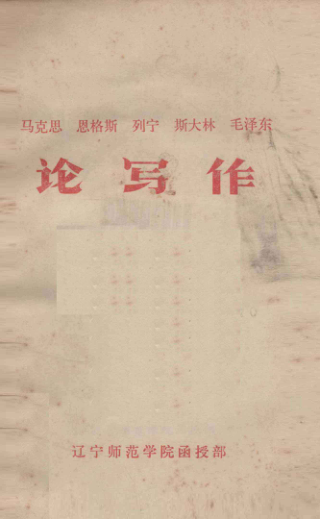 马克思 恩格斯 列宁 斯大林 毛泽东
论写作
辽宁师范学院函授部